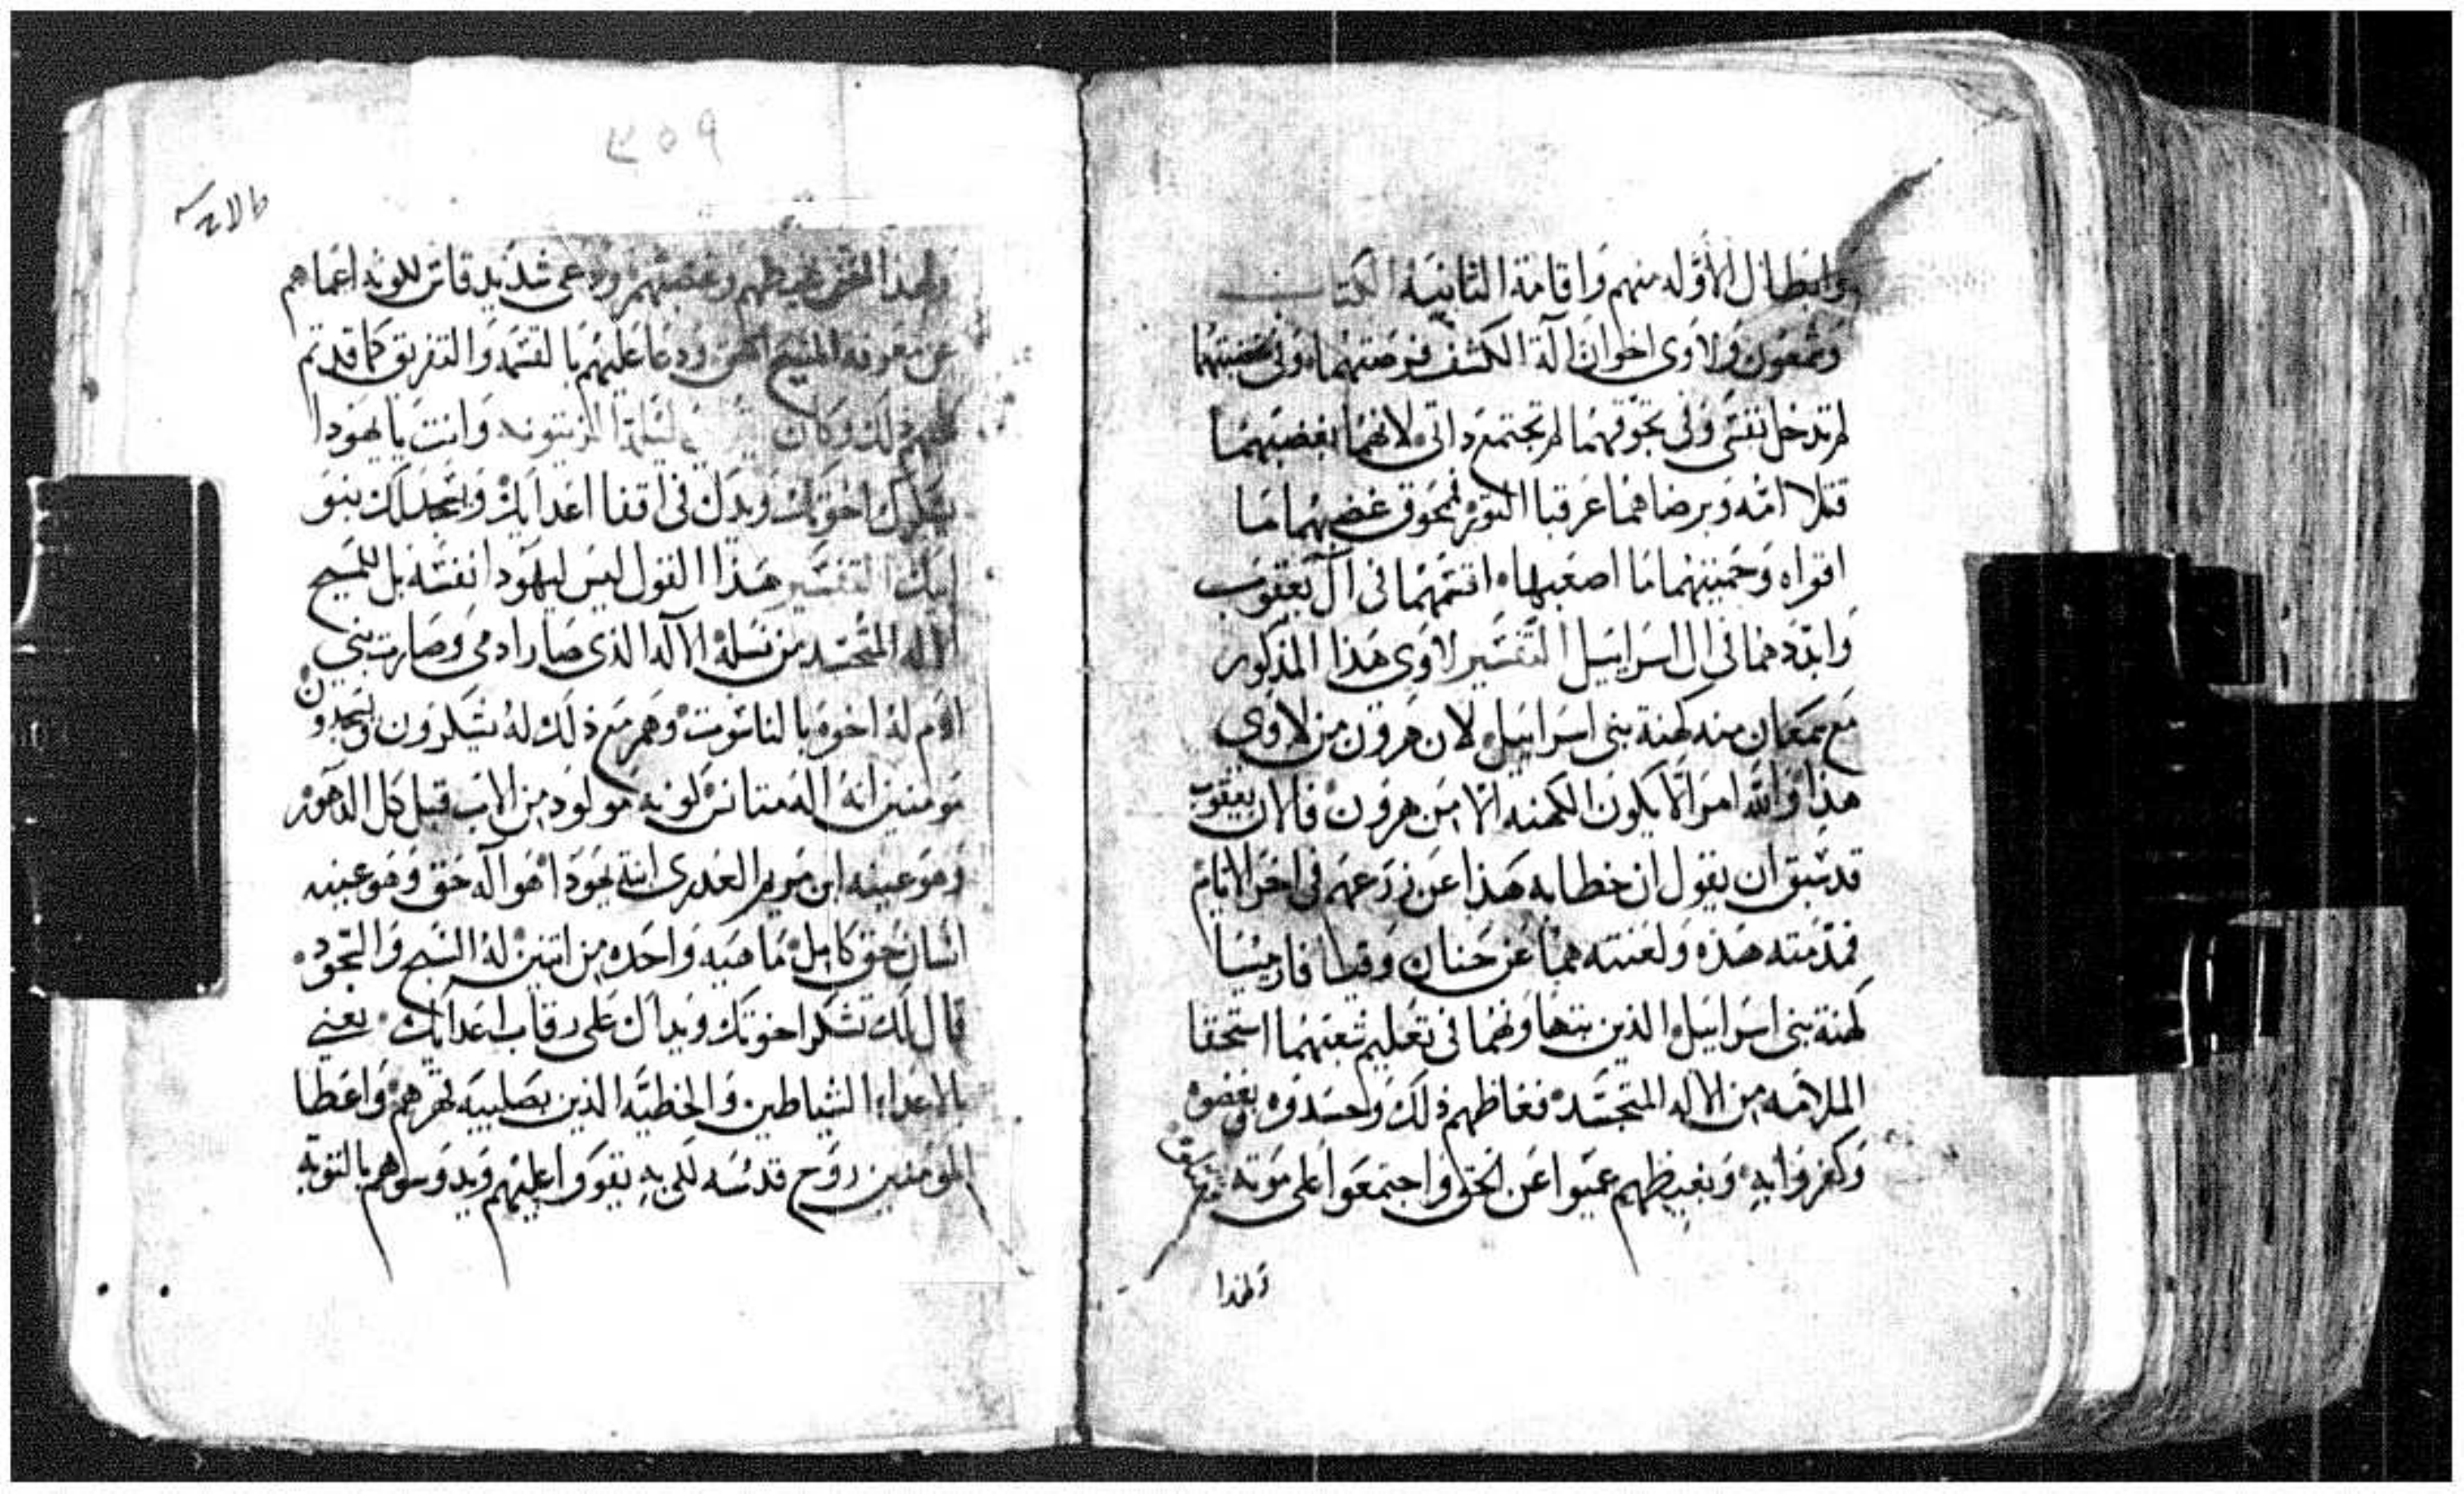 وابطال الاوله منهم واقامة الثانية الكتاب
وشمعون ولاوى اخوان الة الكشف فرصتهما وفى محبتهما
لم تدخل نفسى وفى تحوقهما لم تجتمع داتى لانهما بغضبهما
قتلا امه وبرضاهما عرقبا التور نحوق غضبهما ما
اقواه وحميتهما ما اصعبها اقسمهما فى ال يعقوب
وابددهما فى ال اسراييل التفسير لاوى هذا المذكور
مع سمعان منه كهنة بنى اسراييل لان هرون من لاوى
هذا والله امر الا يكون الكهنه الا من هرون فالان يعقوب
قد سبق ان يقول ان خطابه هذا عن زرعهم فى اخر الايام
فمذمته هذه ولعنته هما عن حنان وقيافا ريسا
كهنة بنى اسراييل الذين بتهاونهما فى تعليم شعبهما استحقا
الملامه من الاله المتجسد فغاظهم ذلك وحسدوه وبغضوه
وكفروا به وبغيظهم عميوا عن الحق واجتمعوا على موته
ولهذا
٣٥٩
ولهذا وغضبهم ودعى شديد قاس لكونه اعماهم
عن معرفة المسيح الحق ودعا عليهم بالقسمه والتفريق كما قد تم
ذلك وكان وانت يا يهودا
يشكرك اخوتك ويدك فى اقفا اعدايك ويسجد لك بنو
ابيك التفسير هذا القول ليس ليهودا نفسه بل للمسيح
الاله المتجسد من نسله الاله الذى صار ادمى وصارت بنى
ادم له اخوه بالناسوت وهم مع ذلك له يشكرون ويسجدون
مومنين انه اله متانس لونه مولود من الاب قبل كل الدهور
وهو عينه ابن مريم العدرى ابنة يهودا هو اله حق وهو عينه
انسان حق كامل ماهيه واحده من اتنين له السبح والسجود
قال لك تشكر اخوتك ويداك على رقاب اعدايك يعنى
بالاعداء الشياطين والخطيه الذين بصليبه قهرهم واعطا
المومنين روح قدسه لكى به يقووا عليهم ويدوسوهم بالتوبه